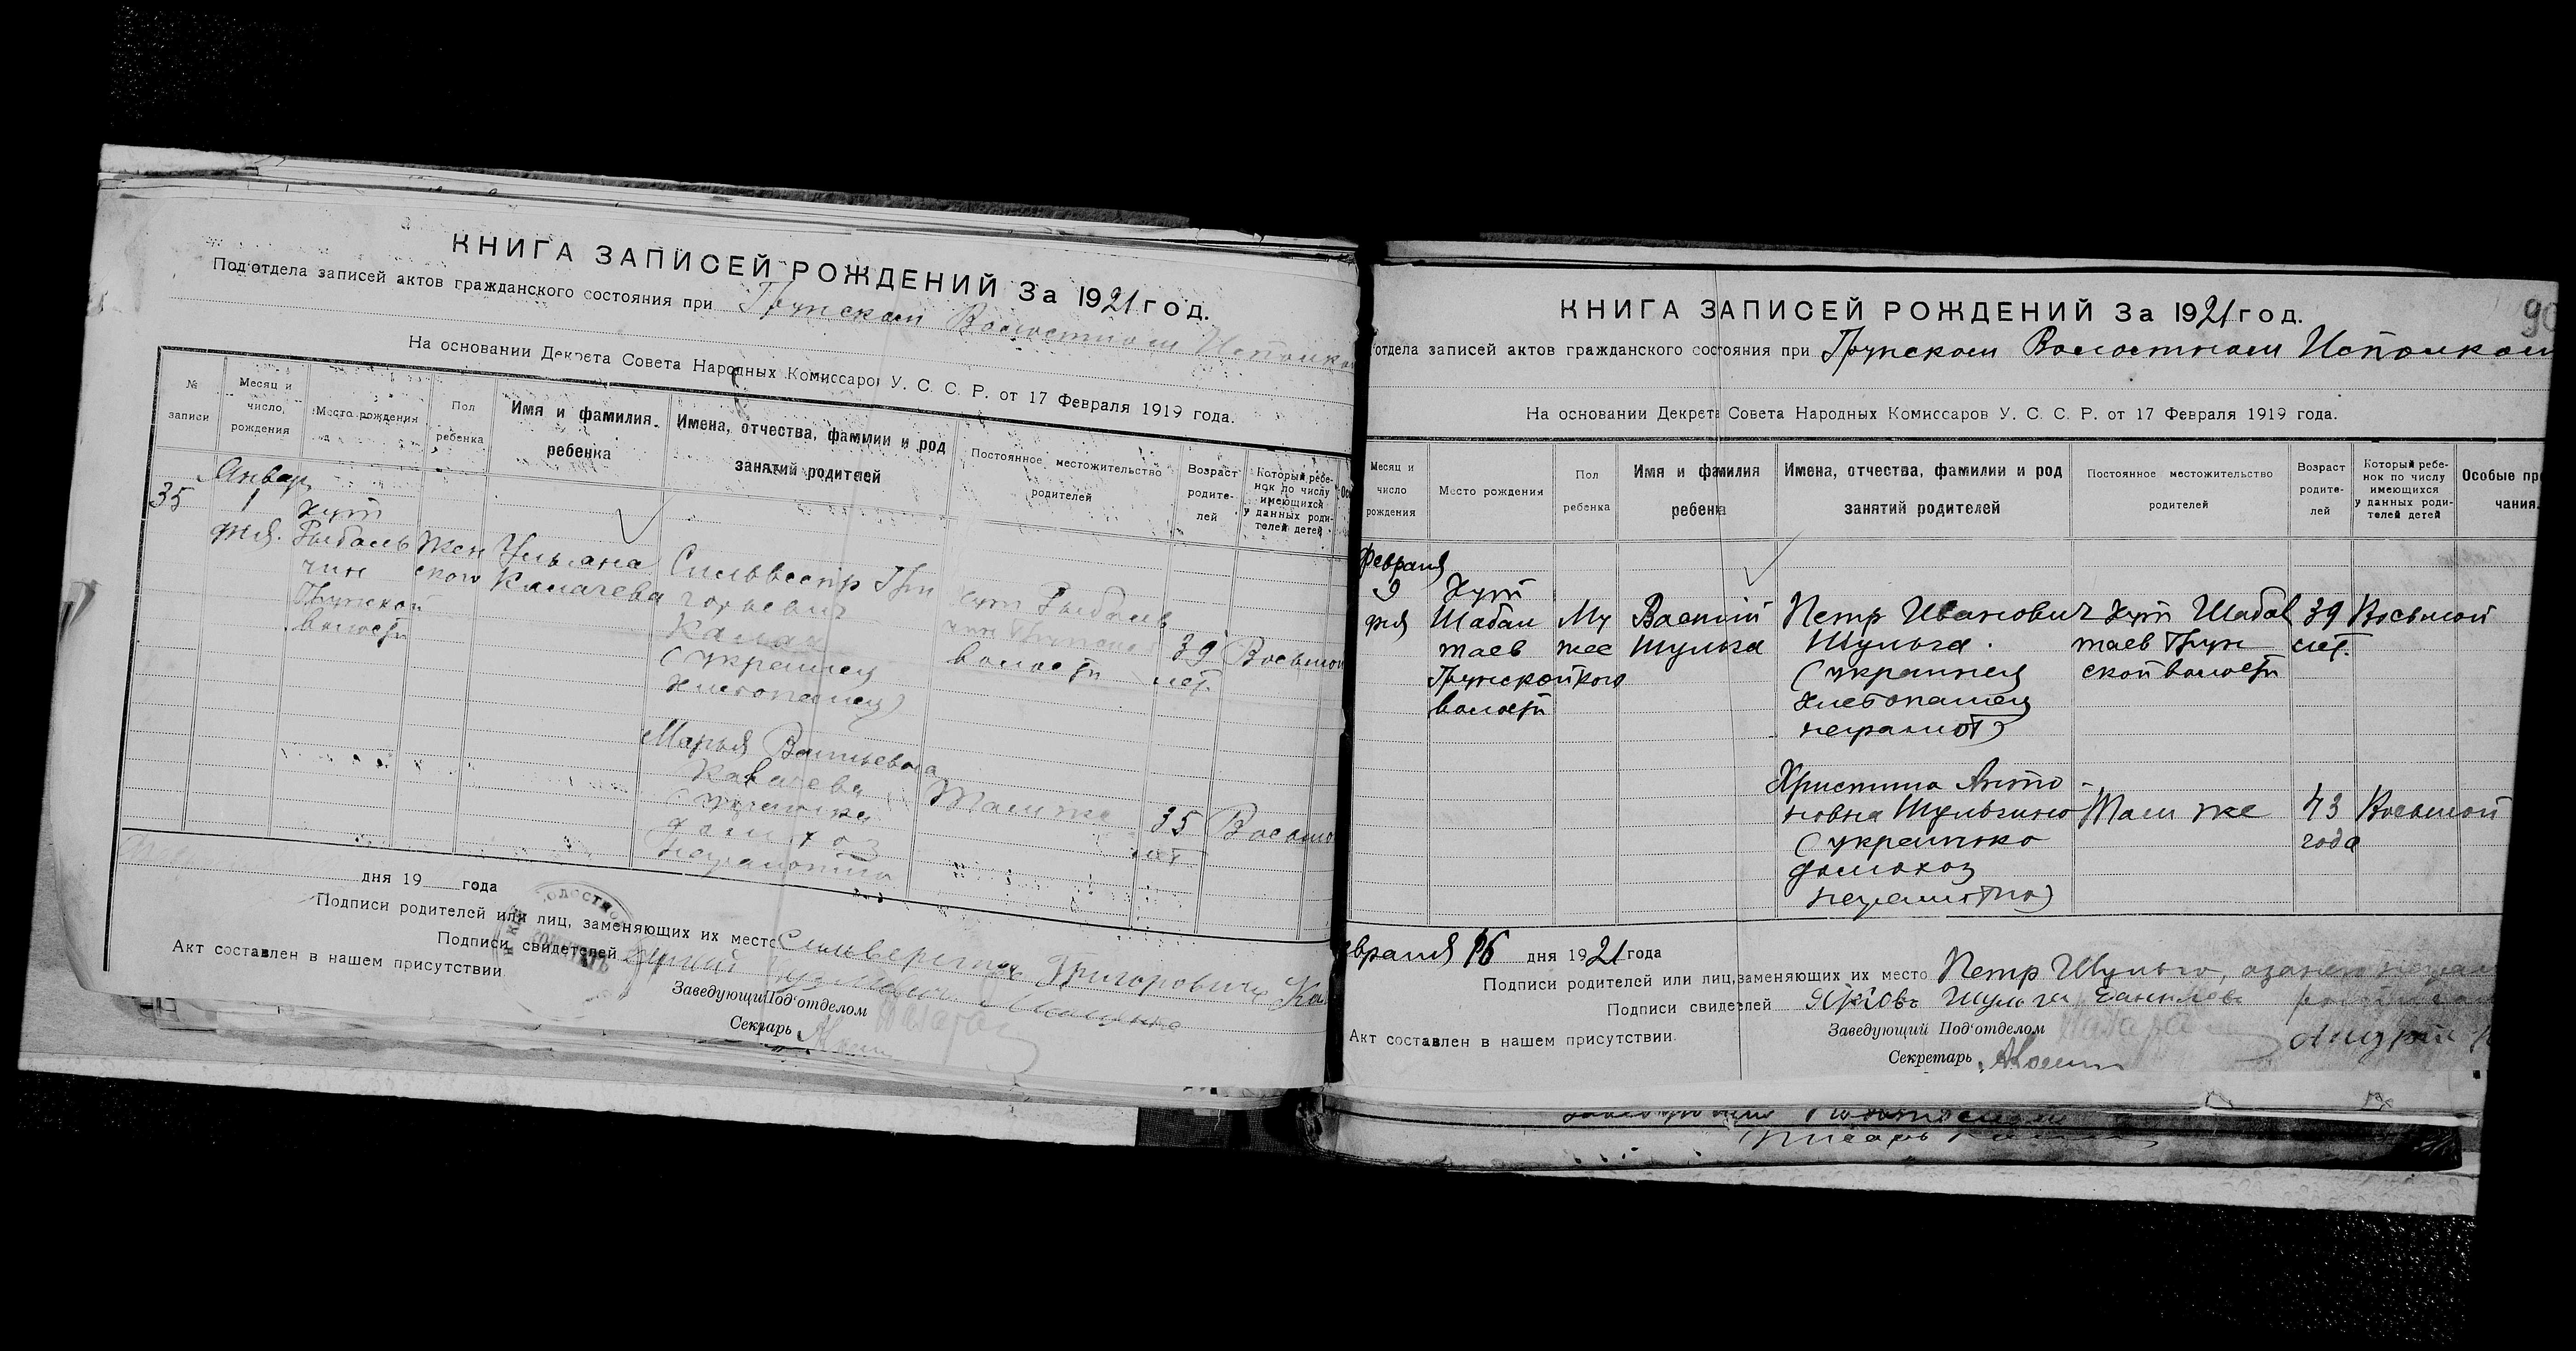 КНИГА ЗАПИСЕЙ РОЖДЕНИЙ За 1921 год.
Под'отдела записей актов гражданского состояния при Грунском Волостном Исполко
На основании Декрета Совета Народных Комиссаров У. С. С. Р. от 17 Февраля 1919 года.
№ записи
Месяц и число, рождения
Место рождения
Пол ребенка
Имя и фамилия ребенка
Имена, отчества, фамилии и род занятий родителей
Постоянное местожительство родителей
Возраст родите-лей
Который ребе-нок по числу имеющихся у данных роди-телей детей
35
Январ
1
дня.
Хут
Рыбаль
чин
Грунской
волости
Жен
ского
Ульяна
Калачева
Сильвестр Гри
горьевич
Калач
(украинец
хлебопашец)
хут Рыбаль
чин Грунской
волости
39
лет.
Восьмой
Марья Васильевна
Калачева
(украинка
домохоз
неграмотна
Там же
35
лет
Восьмо
дня 19 года
Подписи родителей или лиц, заменяющих их место Сильверстъ Григоровичъ Ка
Подписи свидетелей
Акт составлен в нашем присутствии
Заведующий Под'отделом
Секрарь
КНИГА ЗАПИСЕЙ РОЖДЕНИЙ За 1921 год.
90
отдела записей актов гражданского состояния при Грунском Волостном Исполком
На основании Декрета Совета Народных Комиссаров У. С. С. Р. от 17 Февраля 1919 года.
Месяц и число рождения
Место рождения
Пол ребенка
Имя и фамилия ребенка
Имена, отчества, фамилии и род занятий родителей
Постоянное местожительство родителей
Возраст родите-лей
Который ребе-нок по числу имеющихся у данных роди-телей детей
Особые при
чания.
Февраля
9
дня
Хут
Шабал
таев
Грунской
волости
Му
жес
кого
Василий
Шульга
Петр Иванович
Шульга
(украинец
хлебопашец
неграмот)
хут Шабал
таев Грун
ской волости
39
лет.
Восьмой
Христина Анто
новна Шульгина
(украинка
домохоз
неграмотна)
Там же
43
года
Восьмой
евраля 16 дня 1921 года
Подписи родителей или лиц, заменяющих их место Петр Шульга, а за него неграм
Подписи свидетелей Яковъ Шульга
Акт составлен в нашем присутствии.
Заведующий Под'отделом
Андрей
Секретарь